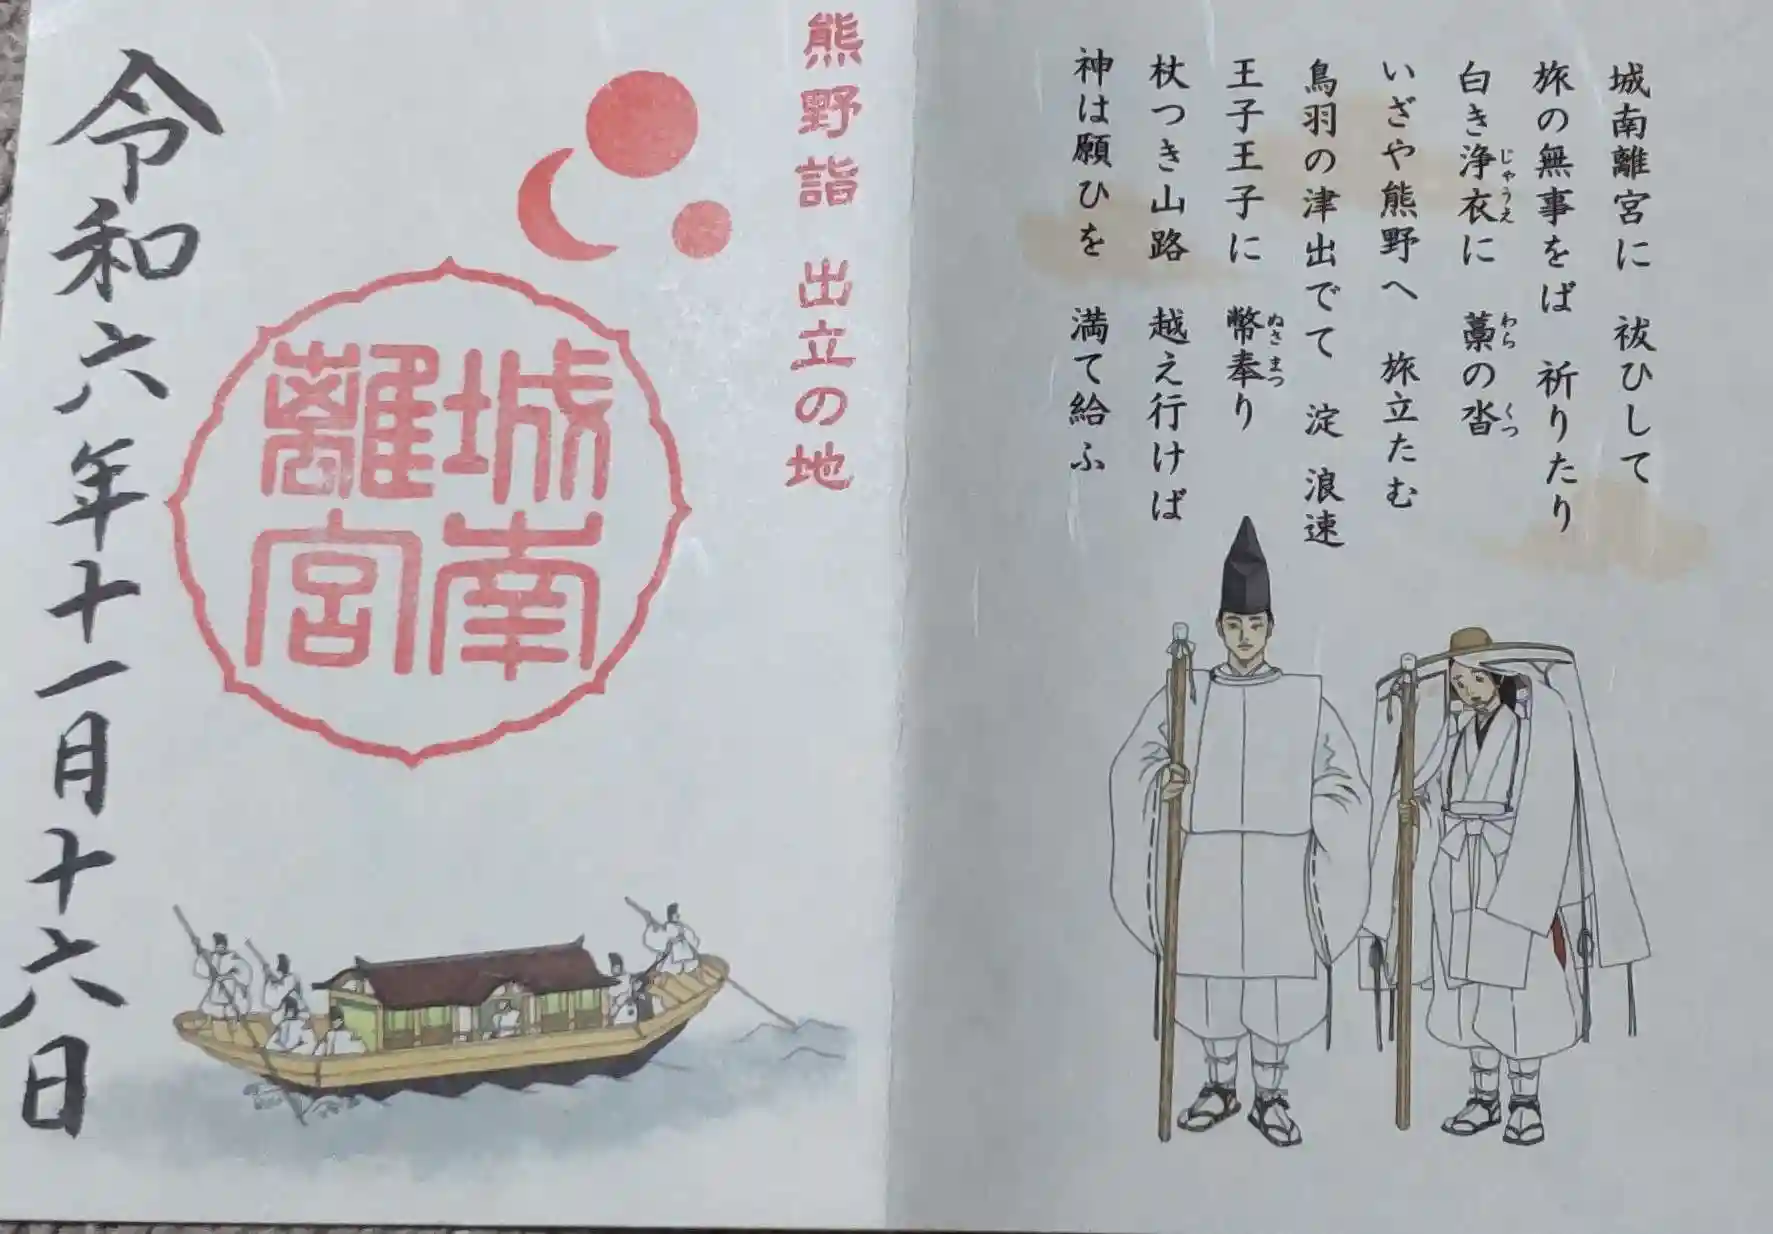 城南離宮に 祓ひして
旅の無事をば 祈りたり
白き浄衣に 藁の沓
じゃうえ
わら
くつ
いざや熊野へ 旅立たむ
鳥羽の津出でて 淀 浪速
王子王子に 幣奉り
ぬさ
まつ
杖つき山路 越え行けば
神は願ひを 満て給ふ
熊野詣 出立の地
城南
離宮
令和六年十一月十六日